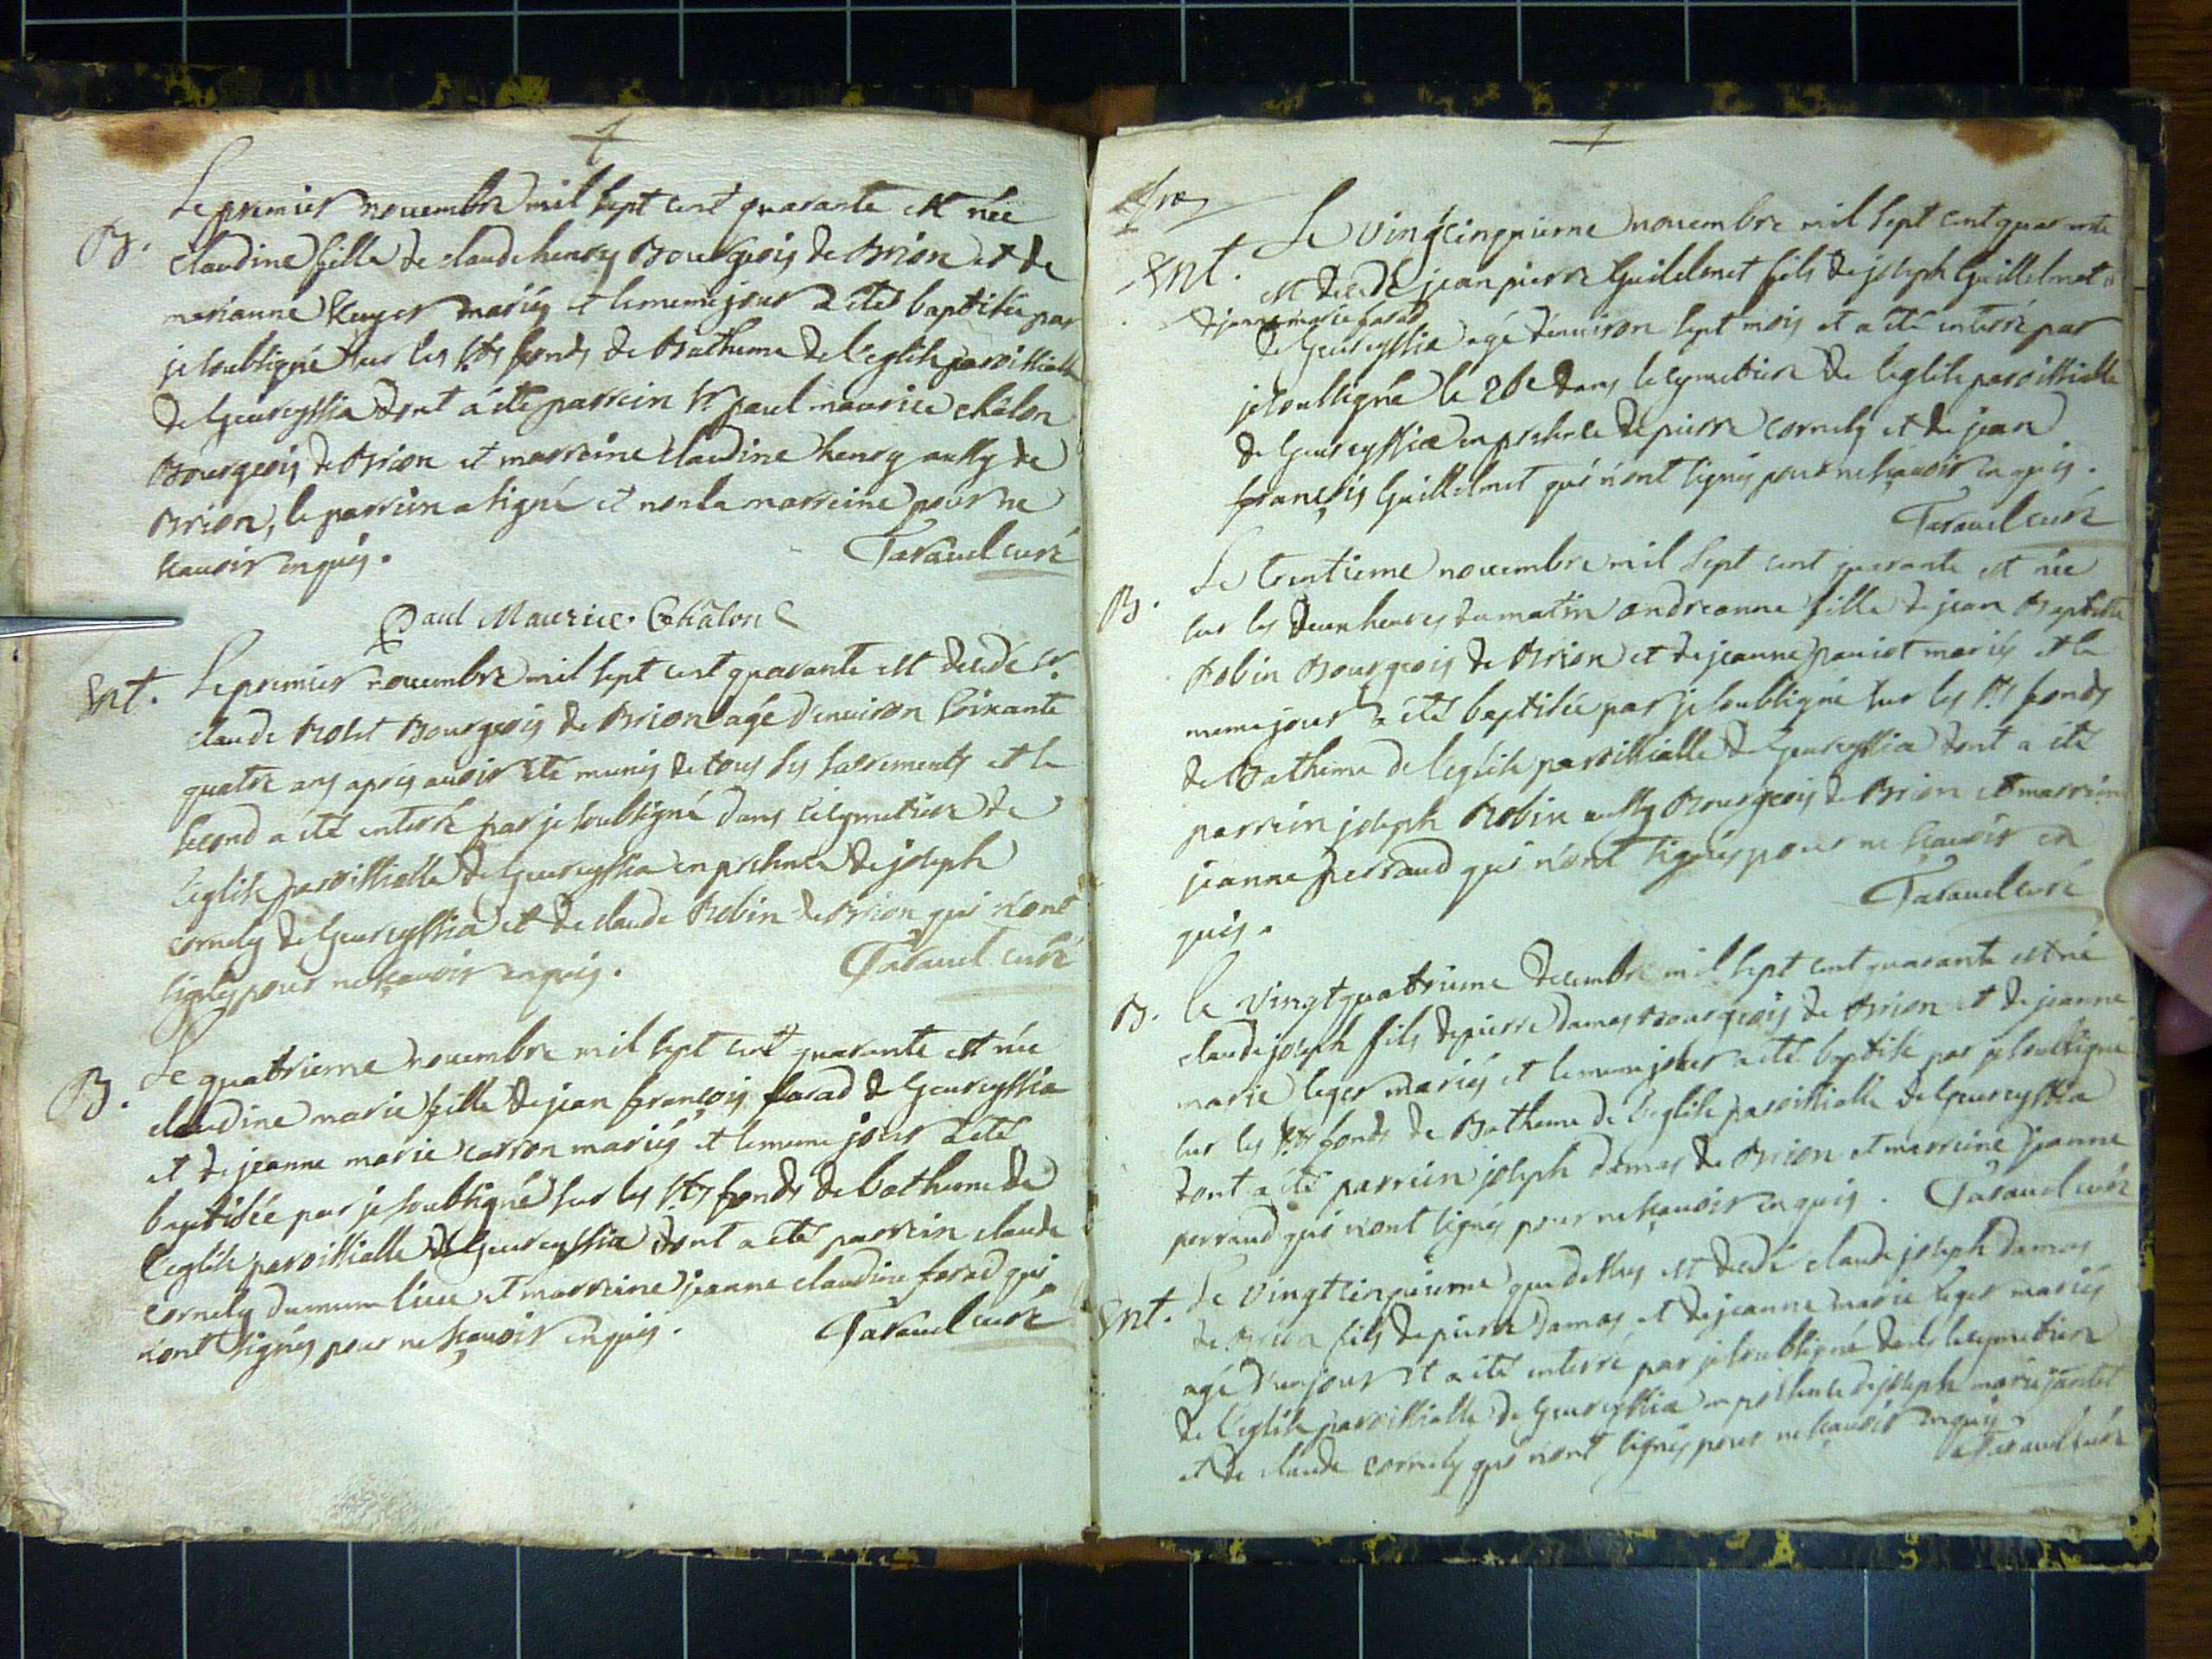 Le premier novembre mil sept cent quarante est née
B. claudine fille de claude henry Bourgeois de Brion et de
marianne mariés et le meme jour a été baptisée par
je soubsigné sur les sts fonds de Batheme de l'eglise paroissialle
de Geureyssia dont a été parrein sr paul maurice châlon
Bourgeois de Brion et marreine claudine henry aussy de
Brion, le parrein a signé et non la marreine pour ne
scavoir enquis. Taravel curé
Paul Maurice Châlon
Ent. Le premier novembre mil sept cent quarante est decedé sr.
claude Rolet Bourgeois de Brion agé d'environ soixante
quatre ans apres avoir été munis de tous ses sacrements et le
second a été enterré par je soubsigné dans le cymetiere de
l'eglise paroissialle de Geureyssia en presence de joseph
cornely de Geureyssia et de claude Robin de Brion qui n'ont
signés pour ne sçavoir enquis. Taravel curé
B. Le quatrieme novembre mil sept cent quarante est née
claudine marie fille de jean françois farad de Geureyssia
et de jeanne marie carron mariés et le meme jour a été
baptisée par je soubsigné sur les sts fonds de batheme de
l'eglise paroissialle de Geureyssia dont a été parrein claude
cornely du meme lieu et marreine jeanne claudine farad qui
n'ont signés pour ne sçavoir enquis. Taravel curé
Le vingtcinquieme novembre mil sept cent quarante
Ent. est decedé jean pierre Guillelmet fils de joseph Guillelmet &
de jeanne marie farad
de Geureyssia agé d'environ sept mois et a été enterré par
je soussigné le 26e dans le cymetiere de l'eglise paroissialle
de Geureyssia en presence de pierre cornely et de jean
françois Guillelmet qui n'ont signés pour ne sçavoir enquis.
Taravel curé
B. Le trentieme novembre mil sept cent quarante est née
sur les deux heures du matin andreanne fille de jean Baptiste
Robin Bourgeois de Brion et de jeanne paviot mariés et le
meme jour a été baptisée par je soubsigné sur les sts fonds
de Batheme de l'eglise paroissialle de Geureyssia dont a été
parrein joseph Robin aussy Bourgeois de Brion et marreine
jeanne perraud qui n'ont signés pour ne scavoir en
quis. Taravel curé
B. Le vingtquatrieme decembre mil sept cent quarante est né
claude joseph fils de pierre damas Bourgeois de Brion et de jeanne
marie leger mariés et le meme jour a été baptisé par je soubsigné
sur les sts fonds de Batheme de l'eglise paroissialle de Geureyssia
dont a été parrein joseph damas de Brion et marreine jeanne
perraud qui n'ont signés pour ne sçavoir enquis. Taravel curé
Ent. Le vingtcinquieme que dessus est decedé claude joseph damas
de Brion fils de pierre damas et de jeanne marie leger mariés
agé d'un jour et a été enterré par je soubsigné dans le cymetiere
de l'eglise paroissialle de Geureyssia en presence de joseph marie jantet
et de claude cornely qui n'ont signés pour ne sçavoir enquis
Taravel curé